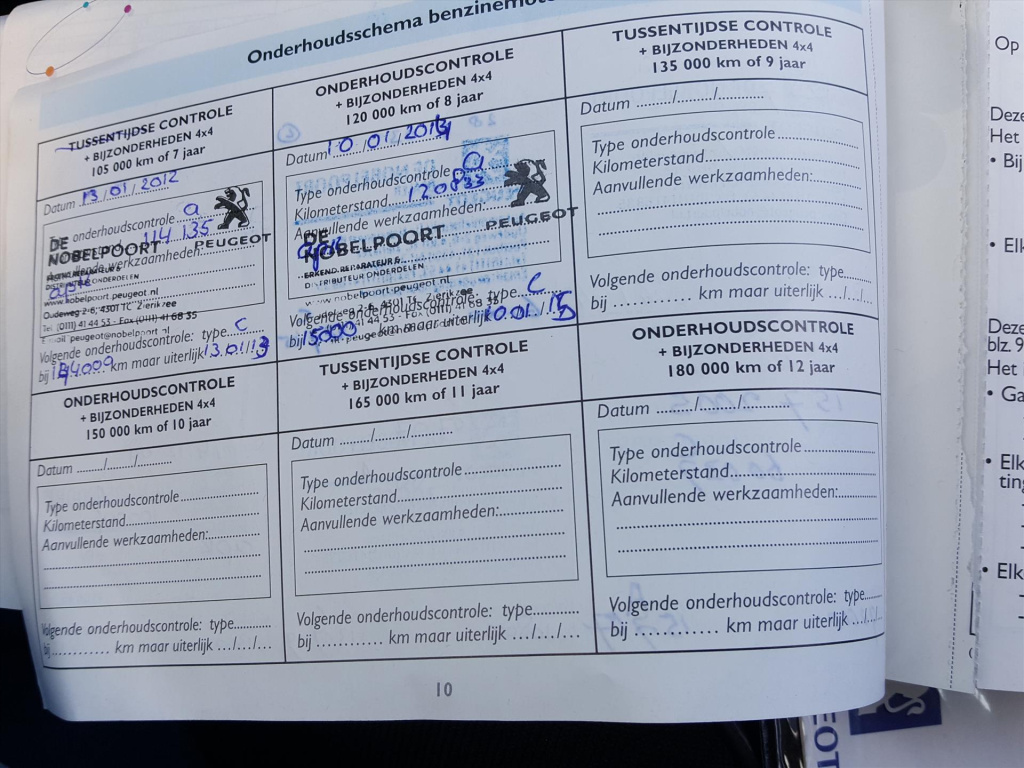 Onderhoudsschema benzinemoto
TUSSENTIJDSE CONTROLE
+ BIJZONDERHEDEN 4x4
105 000 km of 7 jaar
Datum 13/01/2012
onderhoudscontrole a
114 135
DE
NOBELPOORT
PEUGEOT
werkzaamheden:
apk
DISTRIBUTEUR ONDERDELEN
www.nobelpoort.peugeot.nl
Oudeweg 2-6, 4301 TC Zierikzee
Tel. (0111) 41 44 53 - Fax (0111) 41 68 35
E-mail peugeot@nobelpoort.nl
Volgende onderhoudscontrole: type C
bij km maar uiterlijk 13.01.13
ONDERHOUDSCONTROLE
+ BIJZONDERHEDEN 4x4
120 000 km of 8 jaar
Datum 10/01/2014
Type onderhoudscontrole a
Kilometerstand 120833
Aanvullende werkzaamheden:
apk
DE
NOBELPOORT
PEUGEOT
ERKEND REPARATEUR &
DISTRIBUTEUR ONDERDELEN
www.nobelpoort.peugeot.nl
4301 TC Zierikzee
41 44 53 - Fax (0111) 41 68 35
Volgende onderhoudscontrole: type C
bij 15000 km maar uiterlijk 10.01.15
TUSSENTIJDSE CONTROLE
+ BIJZONDERHEDEN 4x4
135 000 km of 9 jaar
Datum ........./........./............
Type onderhoudscontrole
Kilometerstand
Aanvullende werkzaamheden:
Volgende onderhoudscontrole: type......
bij ............ km maar uiterlijk .../.../...
ONDERHOUDSCONTROLE
+ BIJZONDERHEDEN 4x4
150 000 km of 10 jaar
Datum ......./......../...........
Type onderhoudscontrole
Kilometerstand
Aanvullende werkzaamheden:
Volgende onderhoudscontrole: type.........
bij .......... km maar uiterlijk .../.../...
TUSSENTIJDSE CONTROLE
+ BIJZONDERHEDEN 4x4
165 000 km of 11 jaar
Datum ........./........./............
Type onderhoudscontrole
Kilometerstand
Aanvullende werkzaamheden:
Volgende onderhoudscontrole: type..........
bij ............ km maar uiterlijk .../.../...
ONDERHOUDSCONTROLE
+ BIJZONDERHEDEN 4x4
180 000 km of 12 jaar
Datum ........./........./............
Type onderhoudscontrole
Kilometerstand
Aanvullende werkzaamheden:
Volgende onderhoudscontrole: type.....
bij ............ km maar uiterlijk .../.../...
10
Op
Deze
Het
• Bij
• Elk
Deze
blz. 9
Het
• Ga
• Elk
ting
• Elk
EOT